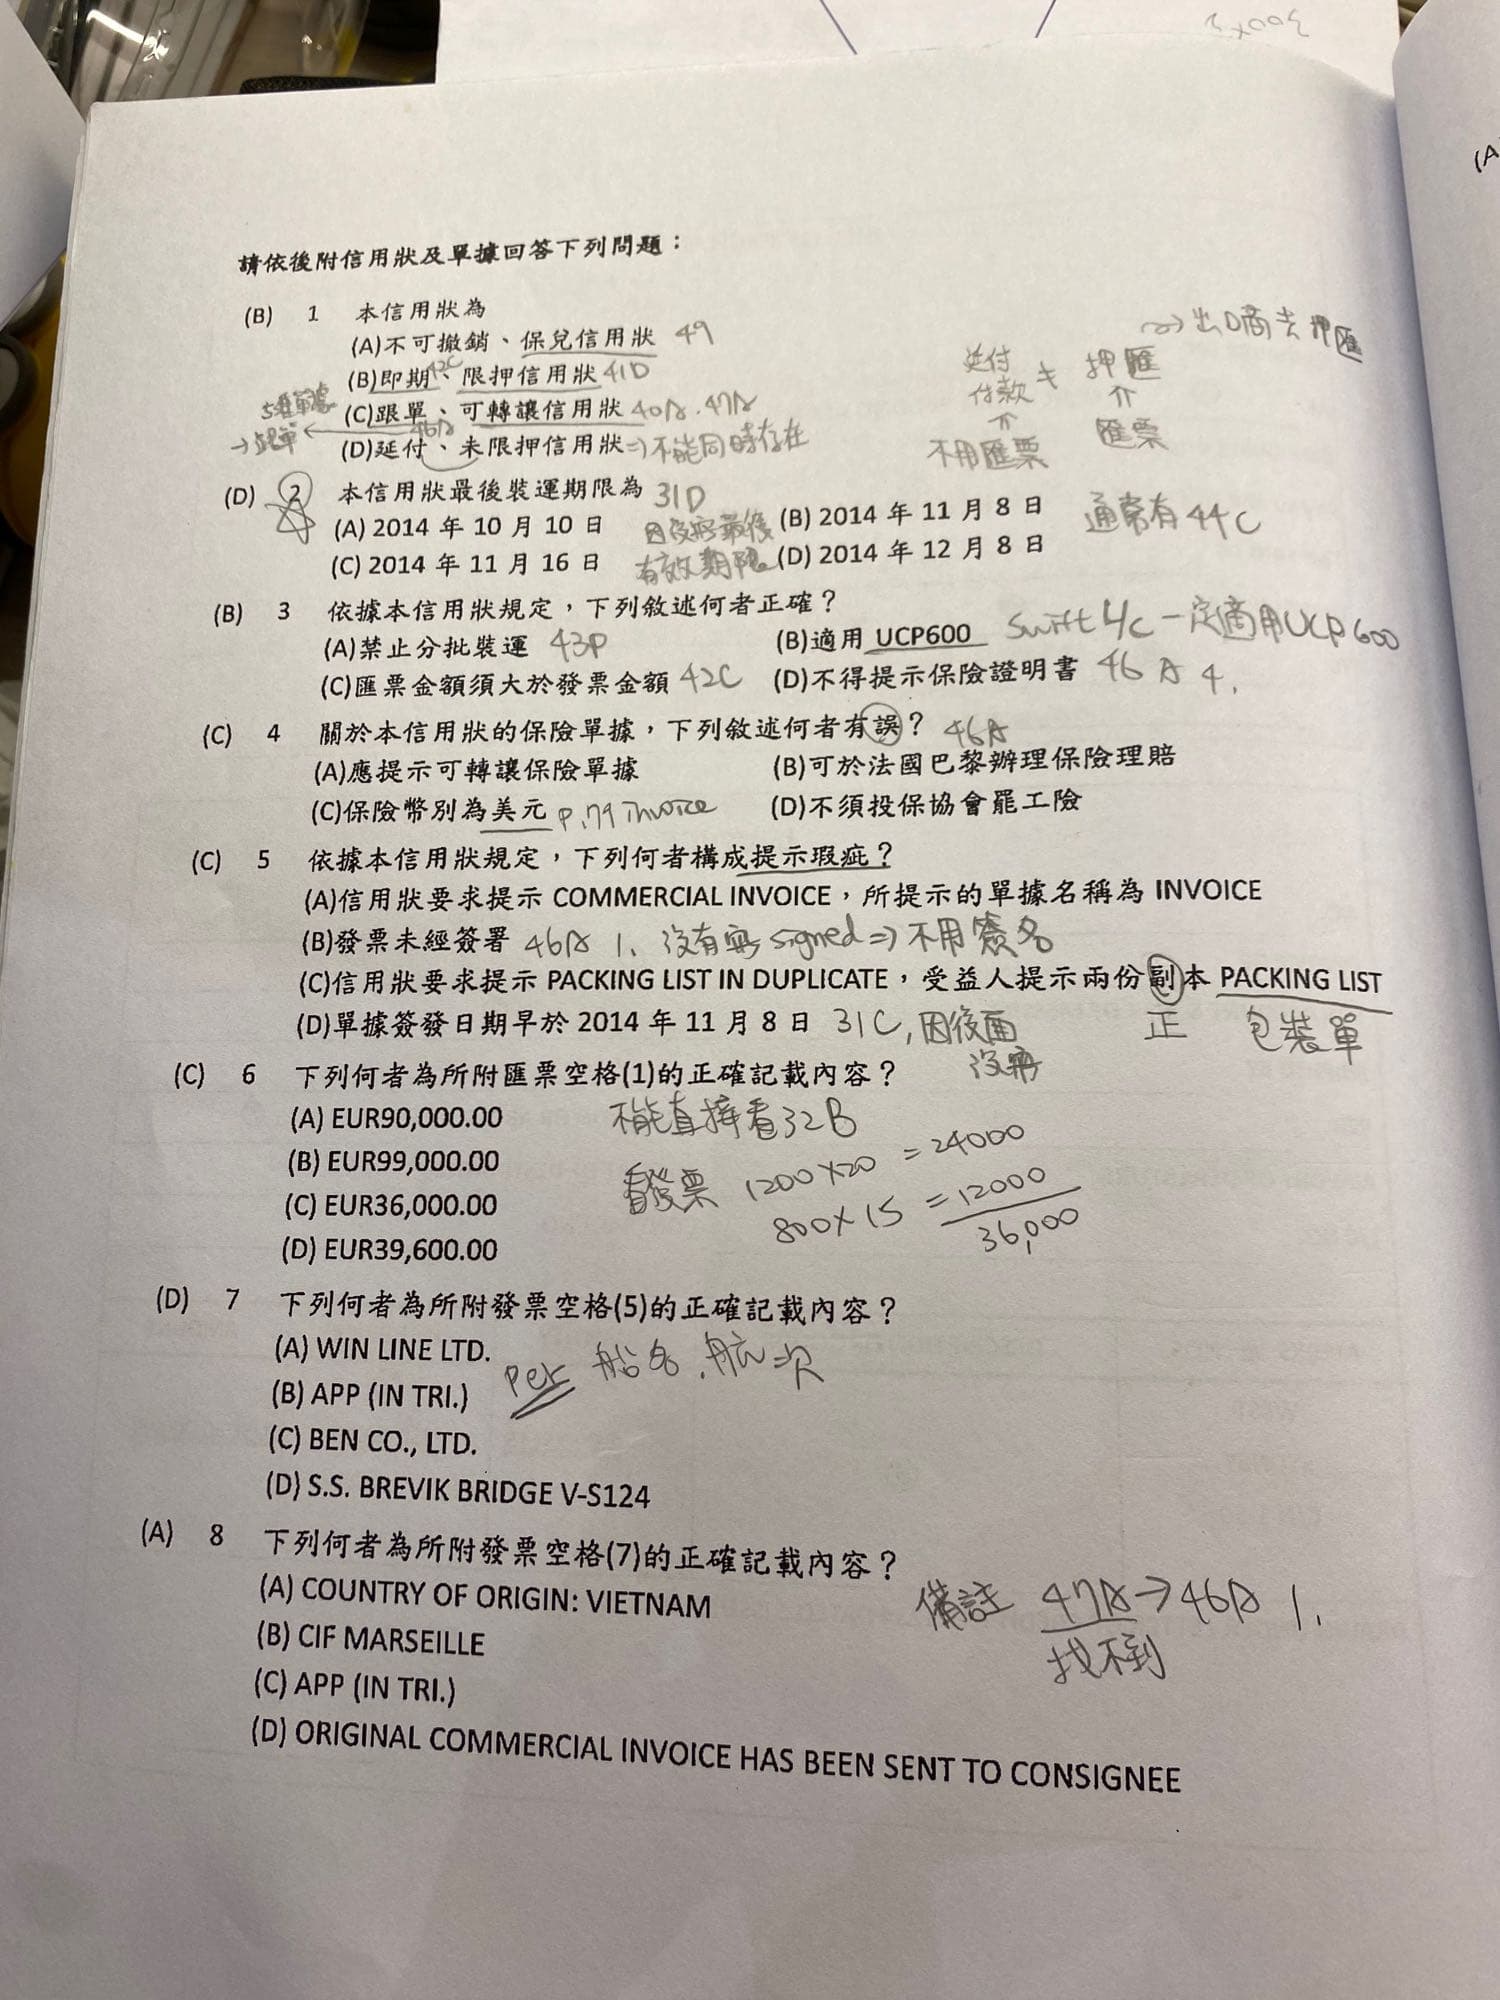 請依後附信用狀及單據回答下列問題：
(B) 1 本信用狀為
(A)不可撤銷、保兌信用狀 49
(B)即期、限押信用狀 41D
42C
(C)跟單、可轉讓信用狀 40A.47A
46A
(D)延付、未限押信用狀⇒不能同時存在
→跟單
→出口商去押匯
延付付款 押匯
不用匯票 匯票
(D) 2 本信用狀最後裝運期限為 31D
(A) 2014 年 10 月 10 日 (B) 2014 年 11 月 8 日 通常有44C
因沒寫最後
(C) 2014 年 11 月 16 日 (D) 2014 年 12 月 8 日
有效期限
(B) 3 依據本信用狀規定，下列敘述何者正確？
(A)禁止分批裝運 43P (B)適用 UCP600 Swift L/C 一定適用UCP600
(C)匯票金額須大於發票金額 42C (D)不得提示保險證明書 46A 4.
(C) 4 關於本信用狀的保險單據，下列敘述何者有誤？ 46A
(A)應提示可轉讓保險單據 (B)可於法國巴黎辦理保險理賠
(C)保險幣別為美元 P.79 invoice (D)不須投保協會罷工險
(C) 5 依據本信用狀規定，下列何者構成提示瑕疵？
(A)信用狀要求提示 COMMERCIAL INVOICE，所提示的單據名稱為 INVOICE
(B)發票未經簽署 46A 1. 沒有寫 signed⇒不用簽名
(C)信用狀要求提示 PACKING LIST IN DUPLICATE，受益人提示兩份副本 PACKING LIST
(D)單據簽發日期早於 2014 年 11 月 8 日 31C,因後面沒寫
正 包裝單
(C) 6 下列何者為所附匯票空格(1)的正確記載內容？
(A) EUR90,000.00 不能直接看32B
(B) EUR99,000.00
(C) EUR36,000.00
(D) EUR39,600.00
看發票 1200×20 = 24000
800×15 = 12000
36,000
(D) 7 下列何者為所附發票空格(5)的正確記載內容？
(A) WIN LINE LTD.
(B) APP (IN TRI.) per 船名.航次
(C) BEN CO., LTD.
(D) S.S. BREVIK BRIDGE V-S124
(A) 8 下列何者為所附發票空格(7)的正確記載內容？
(A) COUNTRY OF ORIGIN: VIETNAM 備註 47A→46A 1.
(B) CIF MARSEILLE 找不到
(C) APP (IN TRI.)
(D) ORIGINAL COMMERCIAL INVOICE HAS BEEN SENT TO CONSIGNEE
(A